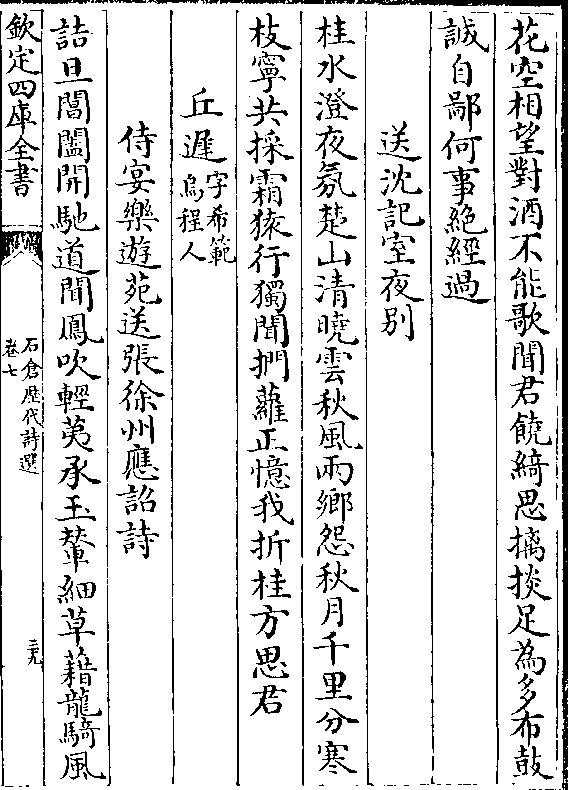 花空相望對酒不能歌聞君饒綺思摛掞足為多布鼓
誠自鄙何事絶經過
送沈記室夜别
桂水澄夜氛楚山清曉雲秋風兩鄉怨秋月千里分寒
枝寧共採霜猿行獨聞捫蘿正憶我折桂方思君
丘遲字希範烏程人
侍宴樂遊苑送張徐州應詔詩
詰旦閶闔開馳道聞鳳吹輕荑承玉輦細草藉龍騎風
欽定四庫全書
石倉歷代詩選
卷七
三九